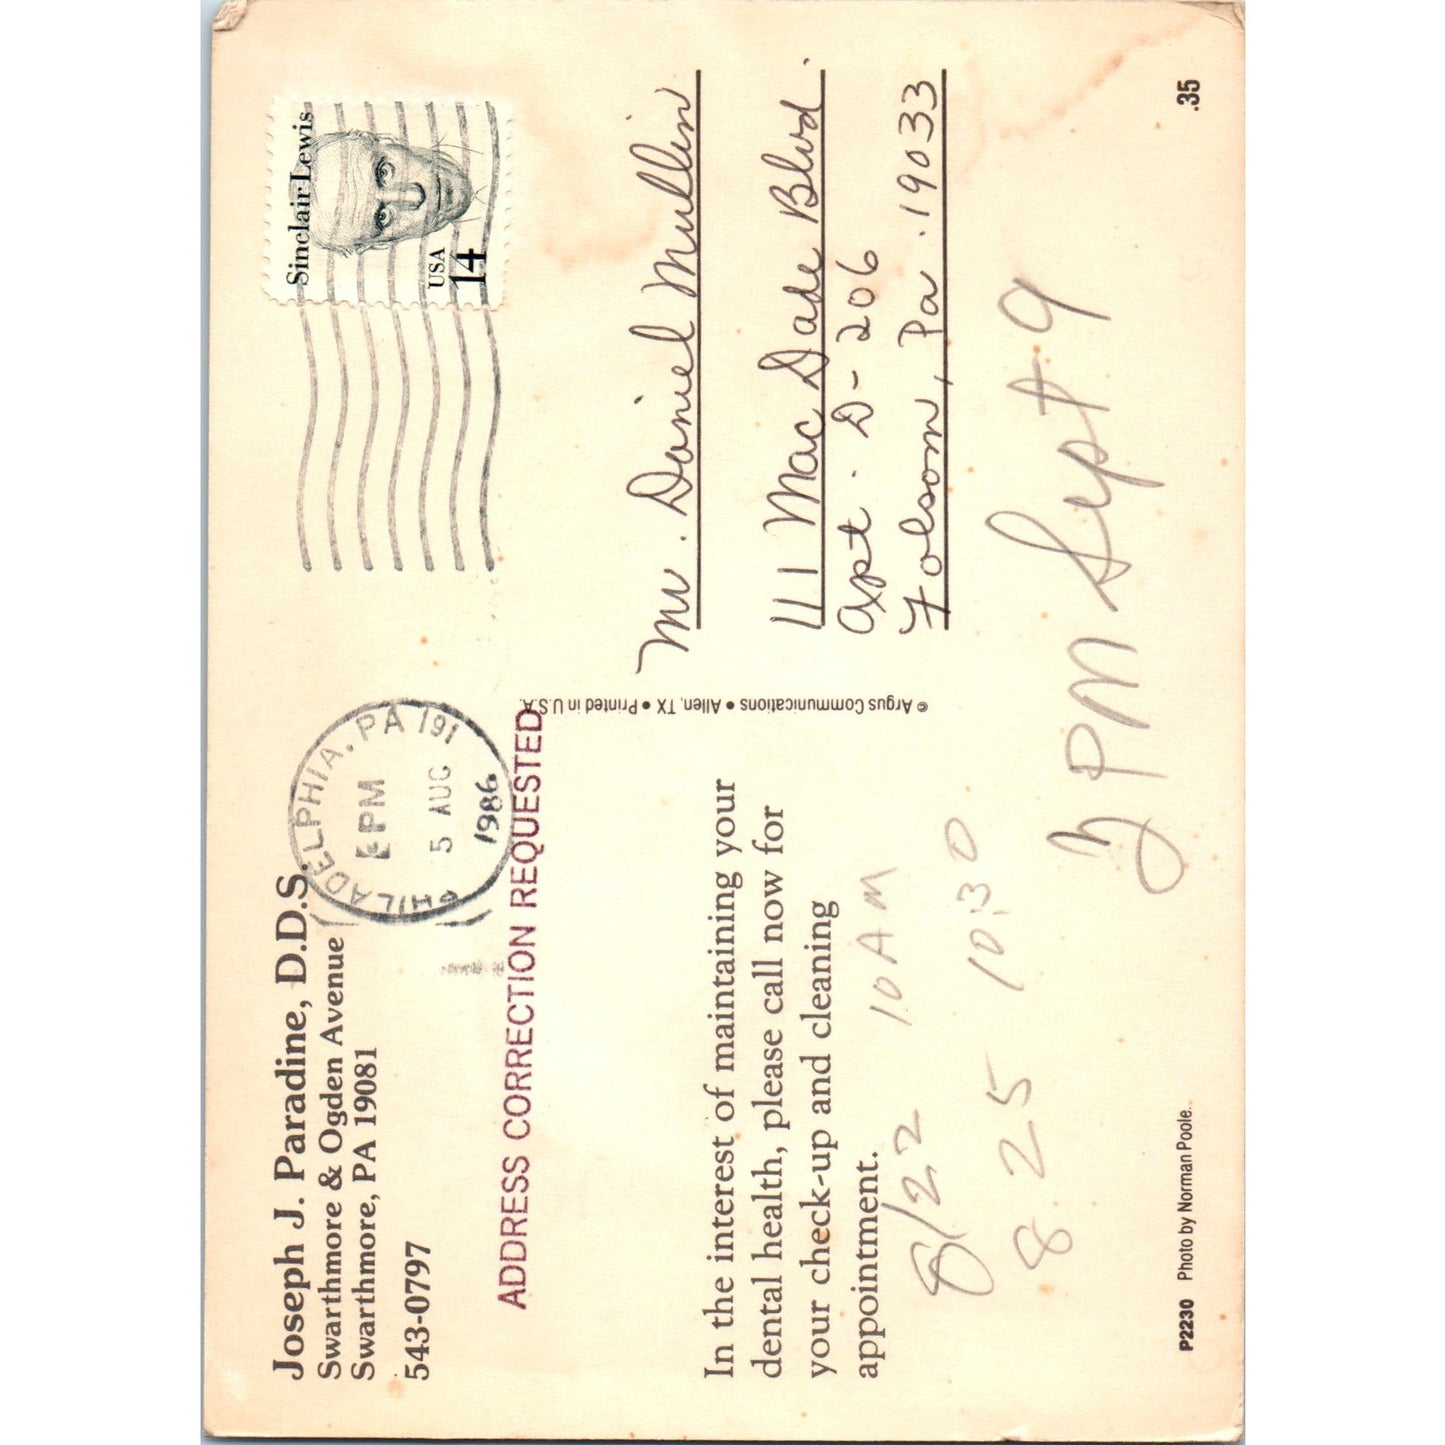 Joseph J. Paradine, D.D.S.
Swarthmore & Ogden Avenue
Swarthmore, PA 19081
543-0797
PHILADELPHIA, PA 191
PM
5 AUG
1986
Sinclair Lewis
USA
14
ADDRESS CORRECTION REQUESTED
In the interest of maintaining your
dental health, please call now for
your check-up and cleaning
appointment.
8/22 10 AM
8.25 10:30
PM Sept 9
© Argus Communications • Allen, TX • Printed in U.S.A.
Mr. Daniel Mullin
111 Mac Dade Blvd.
Apt. D-206
Folsom, Pa. 19033
P2230 Photo by Norman Poole.
.35